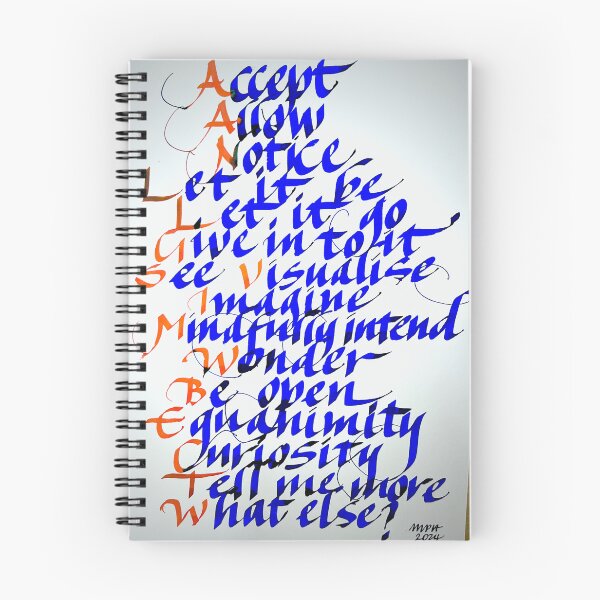 Accept
Allow
Notice
Let it be
Let it go
Give in to it
See Visualise
Imagine
Mindfully intend
Wonder
Be open
Equanimity
Curiosity
Tell me more
What else?
2024